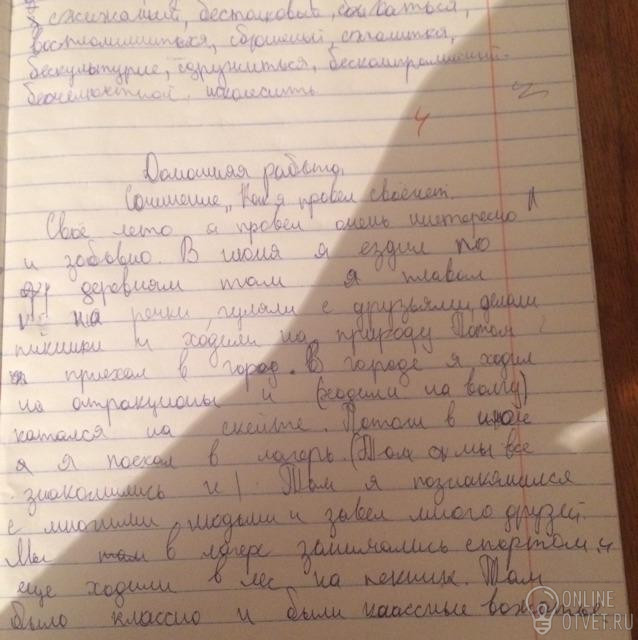 сжижаний, бестолковый, сбиваться,
воспламениться, сброшеный, согланиться,
бескультурие, сдружиться, бескомпромисный
исколесить
4
Домошняя работа.
Сочинение „Как я провел своё лет.
Своё лето я провел очень интересно
и забавно. В июня я ездил по
деревням там я плавал
на речки, гуляли с друзьями, делали
пикники и ходили на природу Потом
я приехал в город. В городе я ходил
на отракционы и (ходили на волгу)
катался на скейте. Потом в июле
я Я поехал в лагерь. (Там мы все
знакомились и ) Там я познакямился
с многими людьми и завел много друзей.
Мы там в лагере занимались спортом. и
еще ходили в лес на пекник. Там
было классно и были каассные вожатые.
ONLINE
OTVET.RU